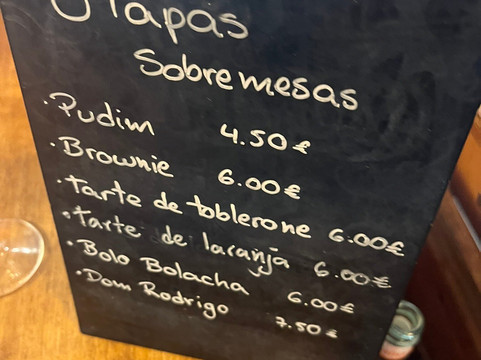 Tapas
Sobremesas
· Pudim 4.50€
· Brownie 6.00€
· Tarte de toblerone 6.00€
· tarte de laranja 6.00€
· Bolo Bolacha 6.00€
· Dom Rodrigo 7.50€